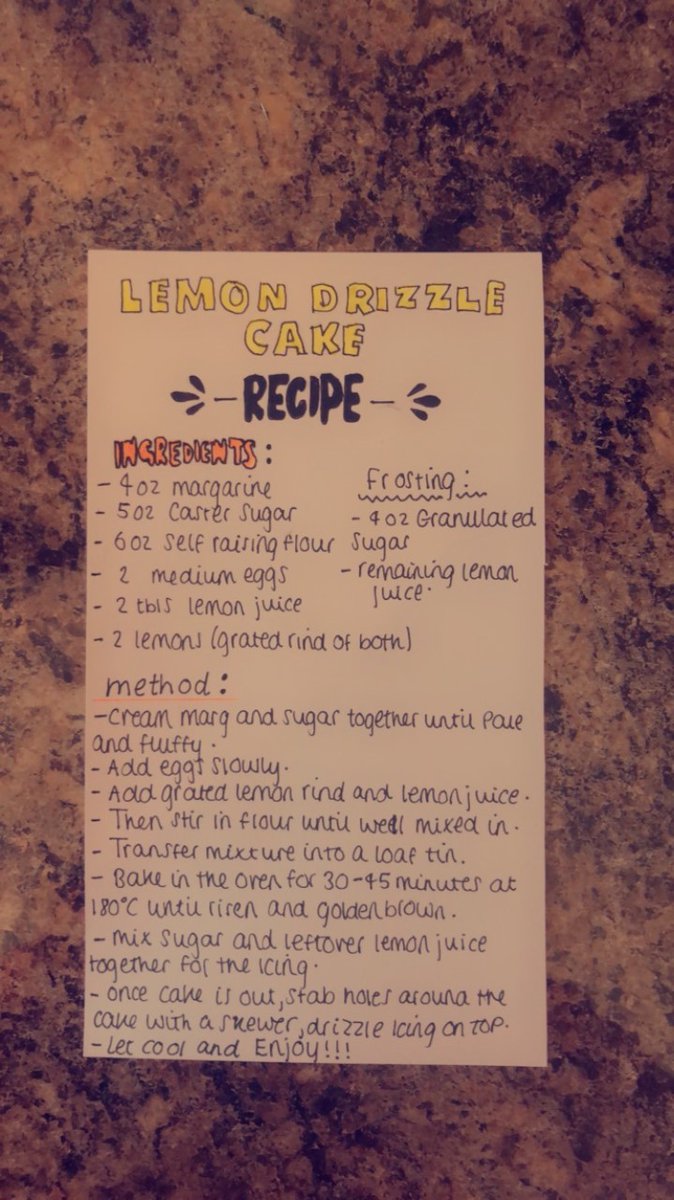 LEMON DRIZZLE
CAKE
- RECIPE -
INGREDIENTS:
- 4oz margarine
- 5oz Caster Sugar
- 6oz self raising flour
- 2 medium eggs
- 2 tbls lemon juice
- 2 lemons (grated rind of both)
Frosting:
- 4oz Granulated
Sugar
- remaining lemon
juice.
method:
- Cream marg and sugar together until Pale
and fluffy.
- Add eggs slowly.
- Add grated lemon rind and lemon juice.
- Then stir in flour until well mixed in.
- Transfer mixture into a loaf tin.
- Bake in the oven for 30-45 minutes at
180°C until risen and golden brown.
- mix sugar and leftover lemon juice
together for the icing.
- once cake is out, stab holes around the
cake with a skewer, drizzle icing on TOP.
- Let cool and Enjoy!!!